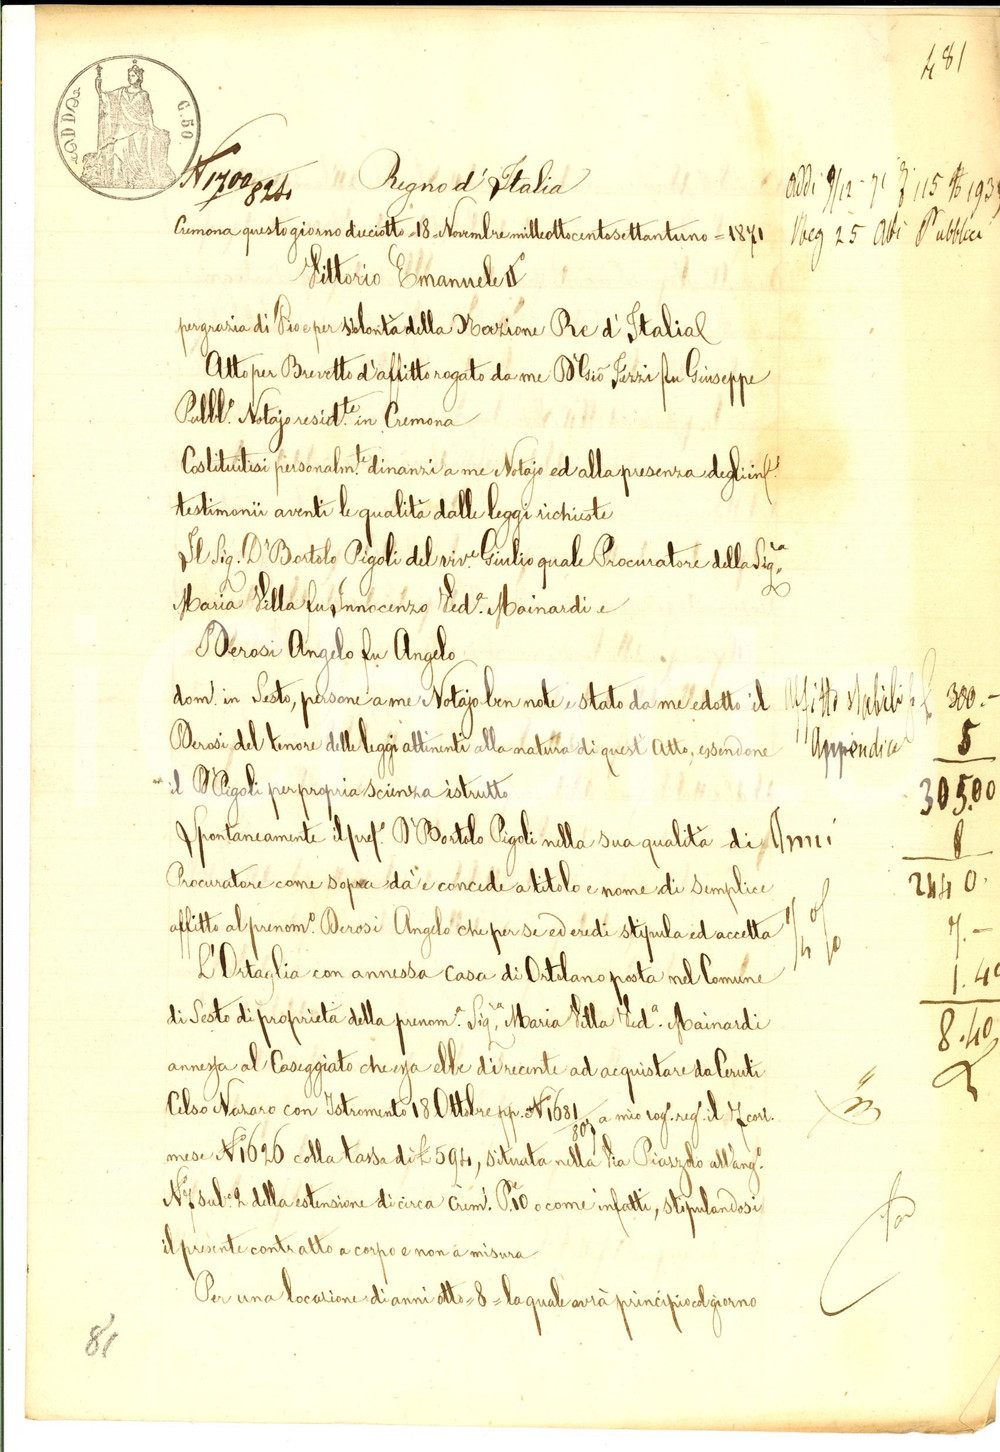 481
C. 50
N° 1700/824 Regno d'Italia
Addi 9/12-71
Cremona questo giorno dieciotto =18= Novembre milleottocentosettantuno = 1871
Reg 25 Atti Pubblici
Vittorio Emanuele II°
per grazia di Dio e per volontà della Nazione Re d'Italia
Atto per Brevetto d'affitto rogato da me Dr Gio Fezzi fu Giuseppe
Pubbl.° Notajo resid.te in Cremona
Costituitisi personalm.te dinanzi a me Notajo ed alla presenza degli inf.i
testimonii aventi le qualità dalle leggi richieste
Il Sig. Dr Bortolo Pigoli del viv.e Giulio quale Procuratore della Sig.ra
Maria Villa fu Innocenzo Ved.a Mainardi e
Derosi Angelo fu Angelo
dom.i in Sesto, persone a me Notajo ben note e stato da me edotto il
Affitto stabili £ 300.-
Derosi del tenore delle leggi attinenti alla natura di quest'Atto, essendone
Appendice 5
il Dr Pigoli per propria scienza istrutto
305.00
Spontaneamente il pref.° Dr Bortolo Pigoli nella sua qualità di
Anni 8
Procuratore come sopra dà e concede a titolo e nome di semplice
2440.
affitto al prenom.° Derosi Angelo che per se ed eredi stipula ed accetta
7.-
L'Ortaglia con annessa casa di Ortolano posta nel Comune
1.40
di Sesto di proprietà della prenom.a Sig.ra Maria Villa Ved.a Mainardi
8.40
annessa al Caseggiato che essa ebbe di recente ad acquistare da Ceruti
Celso Nazaro con Istromento 18 Ottobre pp. N° 1681/805 a mio rog. reg. il 7 corr.
mese N° 1626 colla tassa di £ 594, situata nella Via Piazzolo all'ang.°
N° 7 sub.° 2 della estensione di circa Crem. P.e 10 o come infatti, stipulandosi
il presente contratto a corpo e non a misura
Per una locazione di anni otto =8= la quale avrà principio col giorno
81